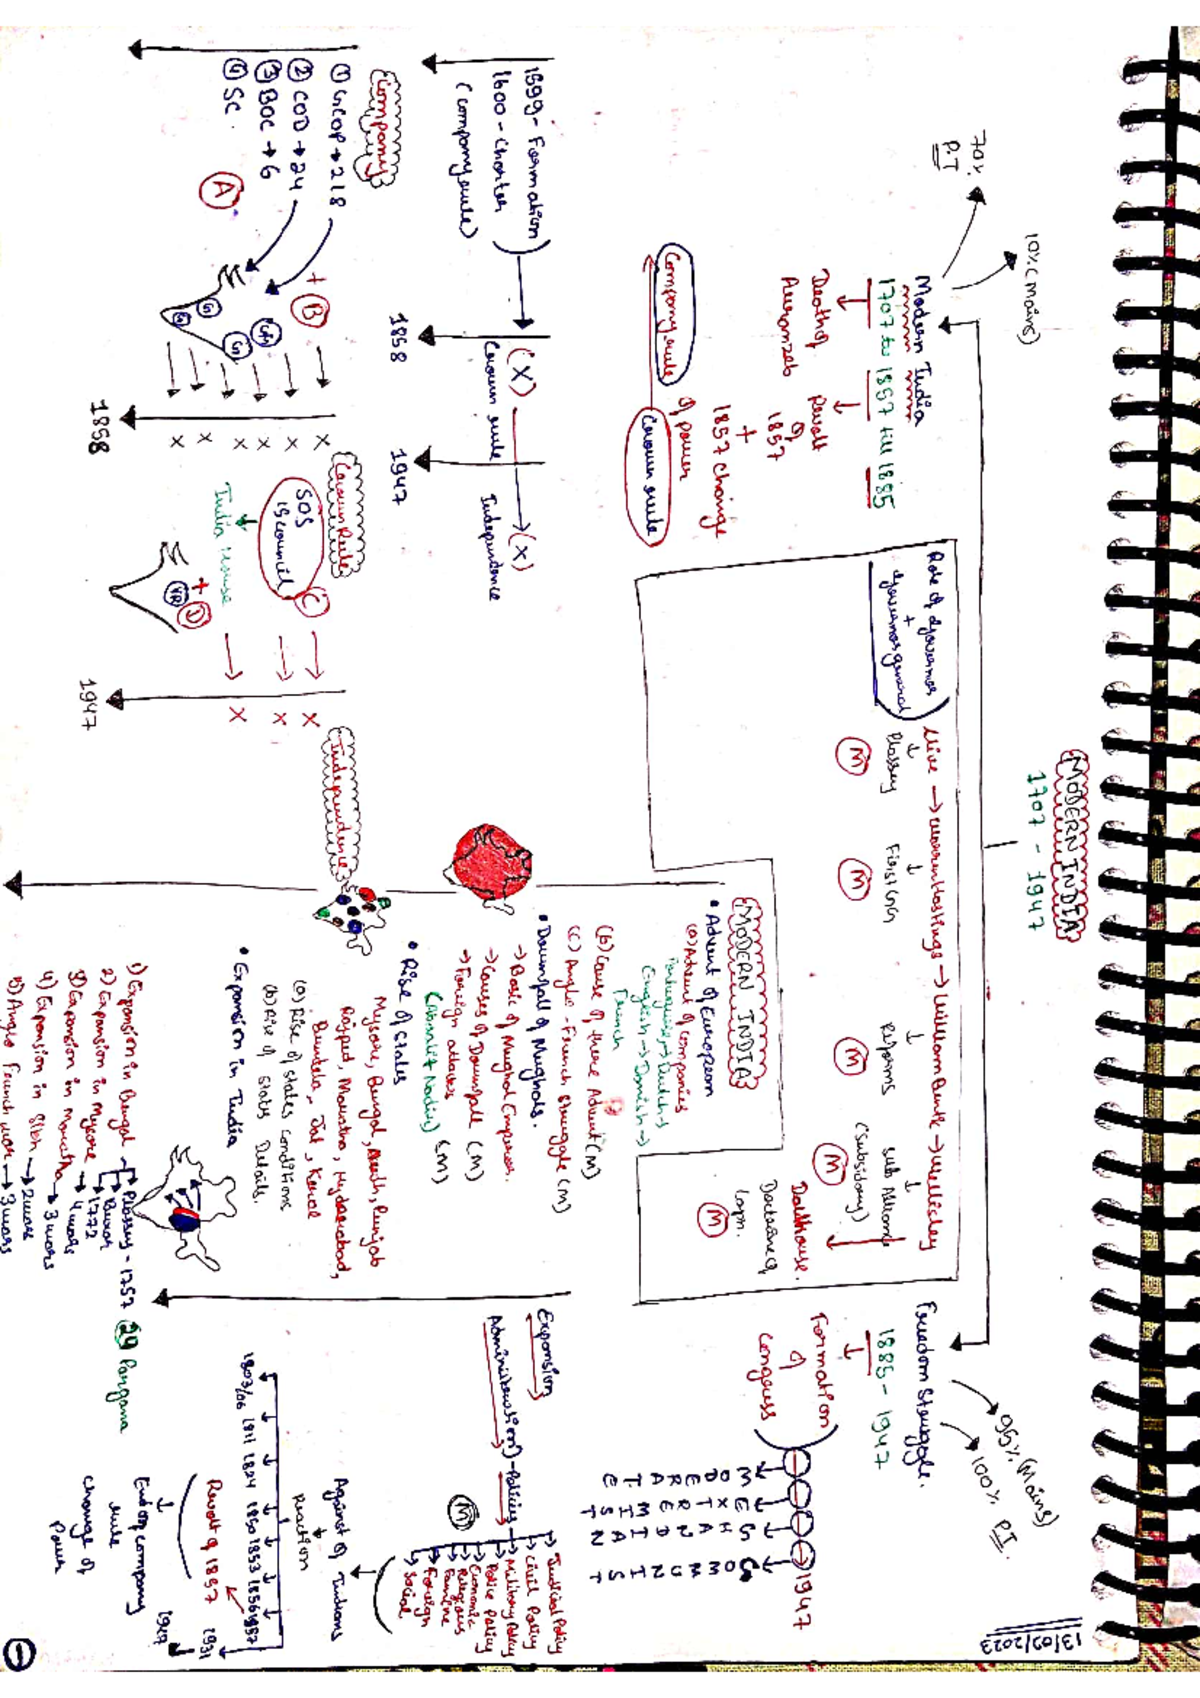 13/09/2023
MODERN INDIA
1707 - 1947
70%
P.T
10% (Mains)
Modern India
1707 to 1857 till 1885
Death of
Aurangzeb
Revolt
of
1857
+
1857 change
of power
Company rule
Crown rule
Role of Governor
+
Governor general
Clive → Warren Hastings → William Bentic → Wellesley
Plassey
M
First GG
M
Reforms
M
Sub Alliance
(Subsidary)
M
Dalhouse.
Doctrine of
Laps.
M
Freedom Struggle.
1885 - 1947
95% (Mains)
100% PI.
Formation
of
Congress
1947
MODERATE
EXTREMIST
GHANDIAN
COMMUNIST
1599 - Formation
1600 - Charter
(Company rule)
(X)
Crown rule
(X)
Independence
1858
1947
Company
① GCOP → 218
② COD → 24
③ BOC → 6
④ SC.
A
+ B
1858
X X X X X X
Crown Rule
SOS
15 council
C
India House
+ D
VR
1947
X X X
Independence
MODERN INDIA
• Advent of European
(a) Advent of companies
Portuguese → Dutch →
English → Danish →
French
(b) Cause of there Advent (M)
(c) Anglo - French struggle (M)
• Downfall of Mughals.
→ Basic of Mughal Emperor.
→ Causes of Downfall (M)
→ Foreign attacks (M)
• Rise of States
Mysore, Bengal, Awadh, Punjab
Rajput, Maratha, Hyderabad,
Bundela, Jat, Keral
(a) Rise of states conditions
(b) Rise of States Details.
• Expansion in India
1) Expansion in Bengal → Plassey - 1757 24 Pargana
Buxar
2) Expansion in Mysore → 1772
4 wars
3) Expansion in Maratha → 3 wars
4) Expansion in Sikh → 2 wars
5) Anglo French war → 3 wars
Expansion
Administration → Policies
M
→ Judicial Policy
→ Civil Policy
→ Military Policy
→ Police Policy
→ Economic
→ Religious
→ Famine
→ Foreign
→ Social
Against of Indians
reaction
1803/06 1811 1824 1850 1853 1856 1857
Revolt of 1857
1931
End of company
rule
change of
Power
1947
1